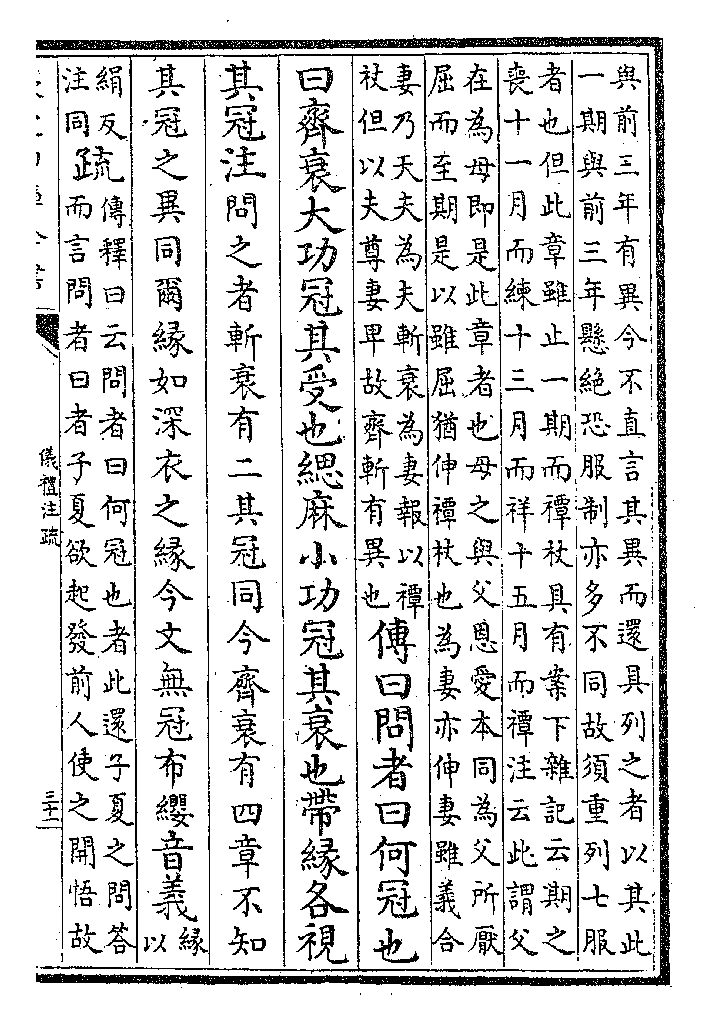 與前三年有異今不直言其異而還具列之者以其此
一期與前三年懸絶恐服制亦多不同故須重列七服
者也但此章雖止一期而禫杖具有案下雜記云期之
喪十一月而練十三月而祥十五月而禫注云此謂父
在為母即是此章者也母之與父恩愛本同為父所厭
屈而至期是以雖屈猶伸禫杖也為妻亦伸妻雖義合
妻乃天夫為夫斬衰為妻報以禫
杖但以夫尊妻卑故齊斬有異也
傳曰問者曰何冠也
曰齊衰大功冠其受也緦麻小功冠其衰也帶縁各視
其冠注問之者斬衰有二其冠同今齊衰有四章不知
其冠之異同爾縁如深衣之縁今文無冠布纓音義縁
以
絹反
注同
疏
傳釋曰云問者曰何冠也者此還子夏之問答
而言問者曰者子夏欲起發前人使之開悟故
儀禮注疏
三十二